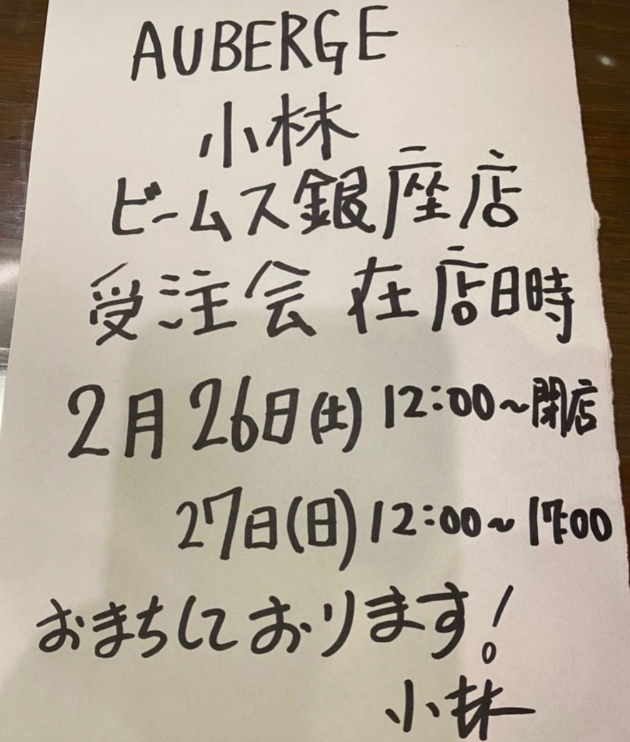 AUBERGE
小林
ビームス銀座店
受注会 在店日時
2月26日(土) 12:00~閉店
27日(日) 12:00~17:00
おまちしております!
小林